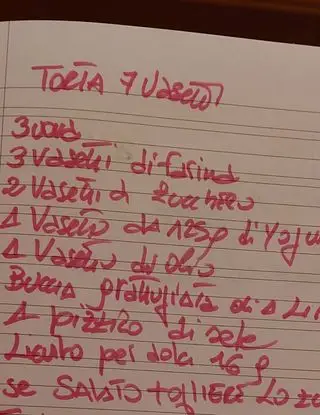 TORTA 7 VASETTI
3 uova
3 Vasetti di farina
2 Vasetti di zucchero
1 Vasetto da 125g di Yogu
1 Vasetto di Olio
Buccia grattugiata di 1 Li
1 pizzico di sale
Lievito per dolci 16 g
se SALATO togliere Lo zu